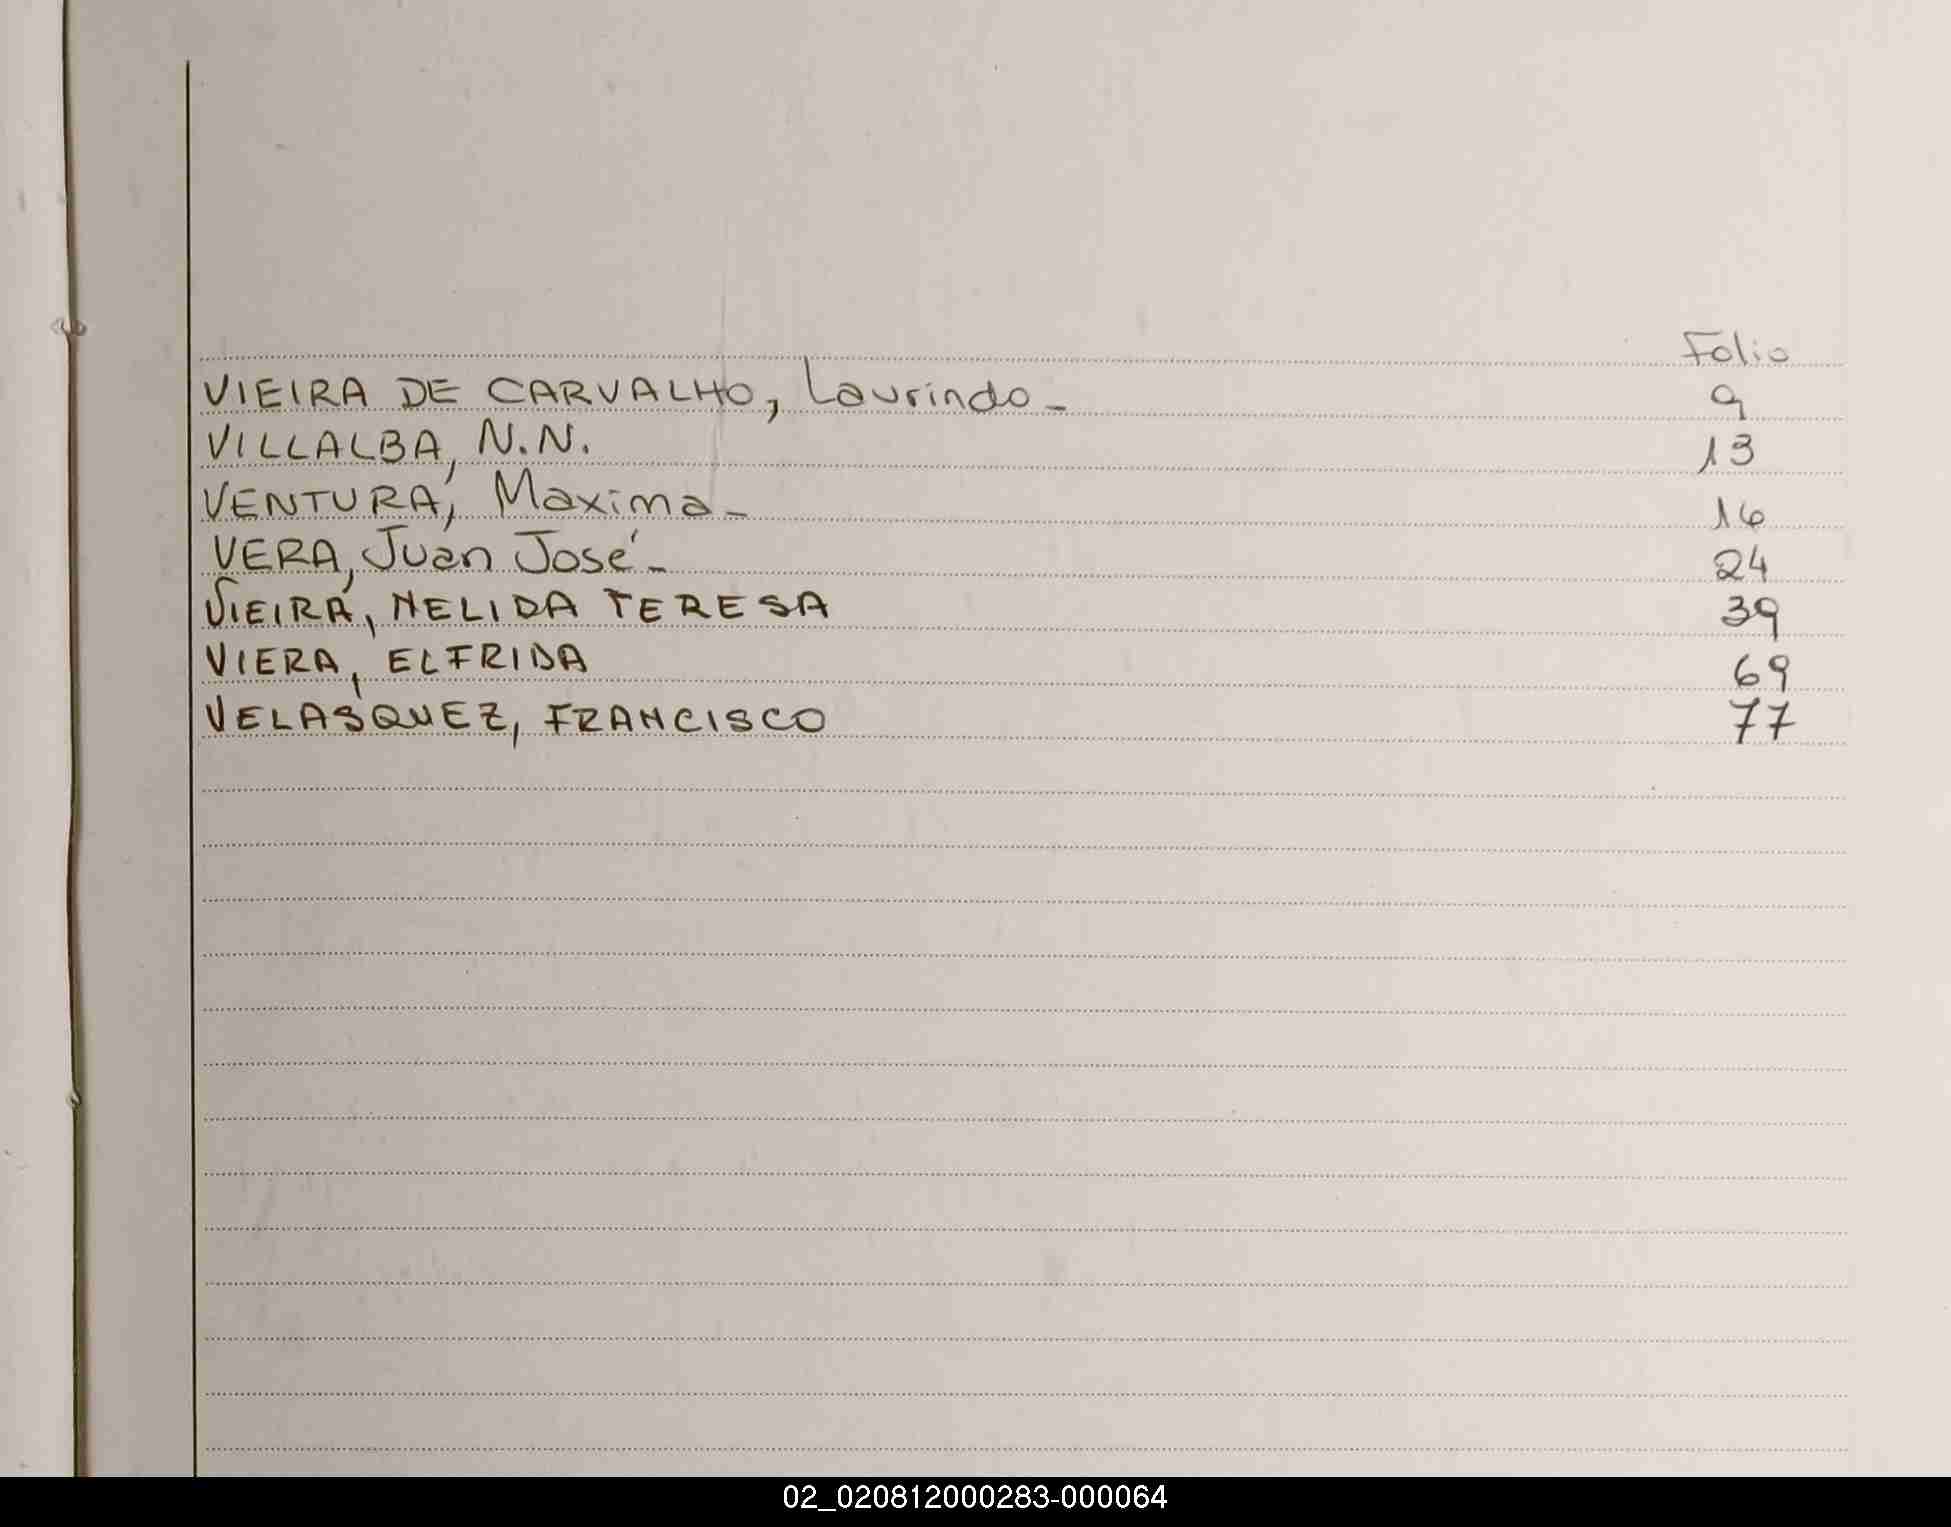 Folio
VIEIRA DE CARVALHO, Laurindo- 9
VILLALBA, N.N. 13
VENTURA, Maxima- 16
VERA, Juan José- 24
VIEIRA, NELIDA TERESA 39
VIERA, ELFRIDA 69
VELASQUEZ, FRANCISCO 77
02_020812000283-000064